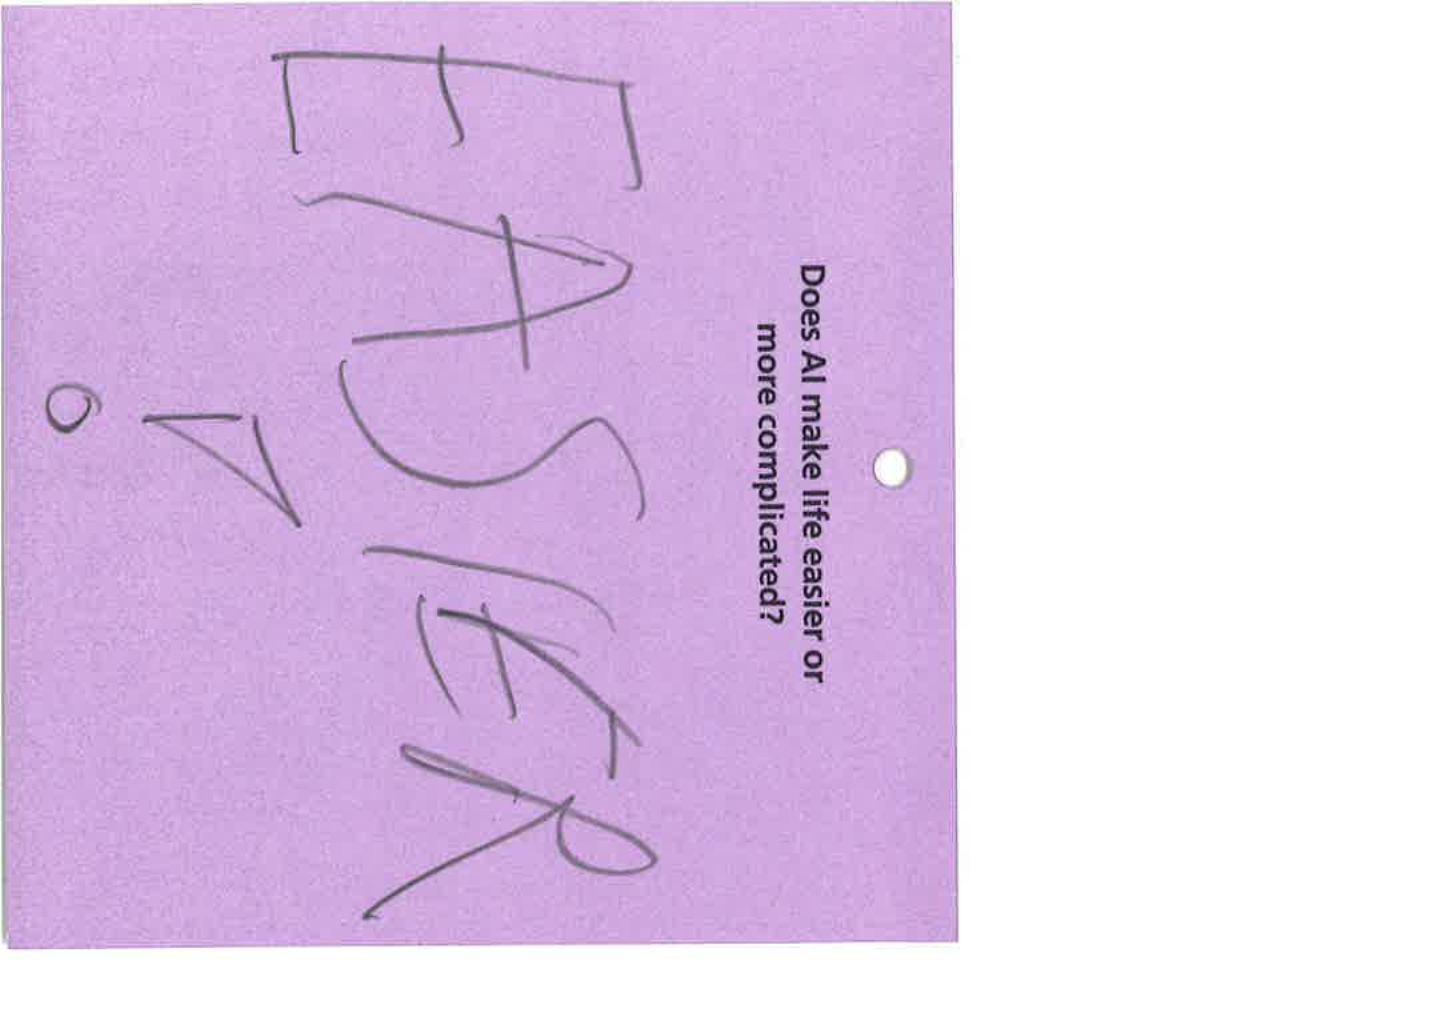 Does AI make life easier or
more complicated?
EASIER